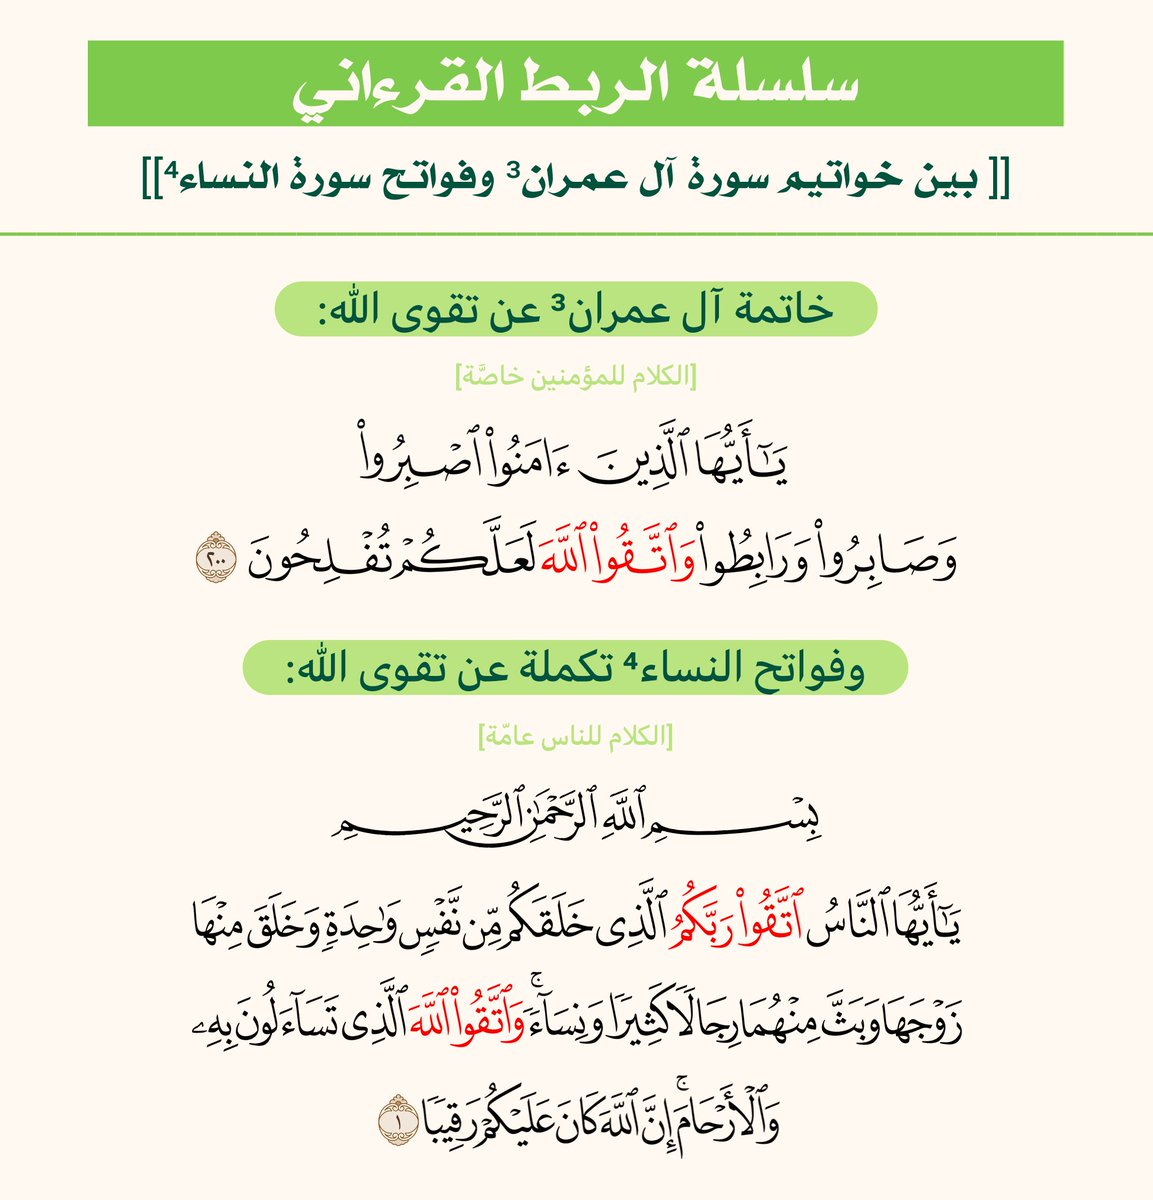 سلسلة الربط القرءاني
[[ بين خواتيم سورة آل عمران³ وفواتح سورة النساء⁴]]
خاتمة آل عمران³ عن تقوى الله:
[الكلام للمؤمنين خاصَّة]
يَـٰٓأَيُّهَا ٱلَّذِينَ ءَامَنُوا۟ ٱصْبِرُوا۟
وَصَابِرُوا۟ وَرَابِطُوا۟ وَٱتَّقُوا۟ ٱللَّهَ لَعَلَّكُمْ تُفْلِحُونَ ٢٠٠
وفواتح النساء⁴ تكملة عن تقوى الله:
[الكلام للناس عامّة]
بِسْمِ ٱللَّهِ ٱلرَّحْمَـٰنِ ٱلرَّحِيمِ
يَـٰٓأَيُّهَا ٱلنَّاسُ ٱتَّقُوا۟ رَبَّكُمُ ٱلَّذِى خَلَقَكُم مِّن نَّفْسٍ وَٰحِدَةٍ وَخَلَقَ مِنْهَا
زَوْجَهَا وَبَثَّ مِنْهُمَا رِجَالًا كَثِيرًا وَنِسَآءً ۚ وَٱتَّقُوا۟ ٱللَّهَ ٱلَّذِى تَسَآءَلُونَ بِهِۦ
وَٱلْأَرْحَامَ ۚ إِنَّ ٱللَّهَ كَانَ عَلَيْكُمْ رَقِيبًا ١